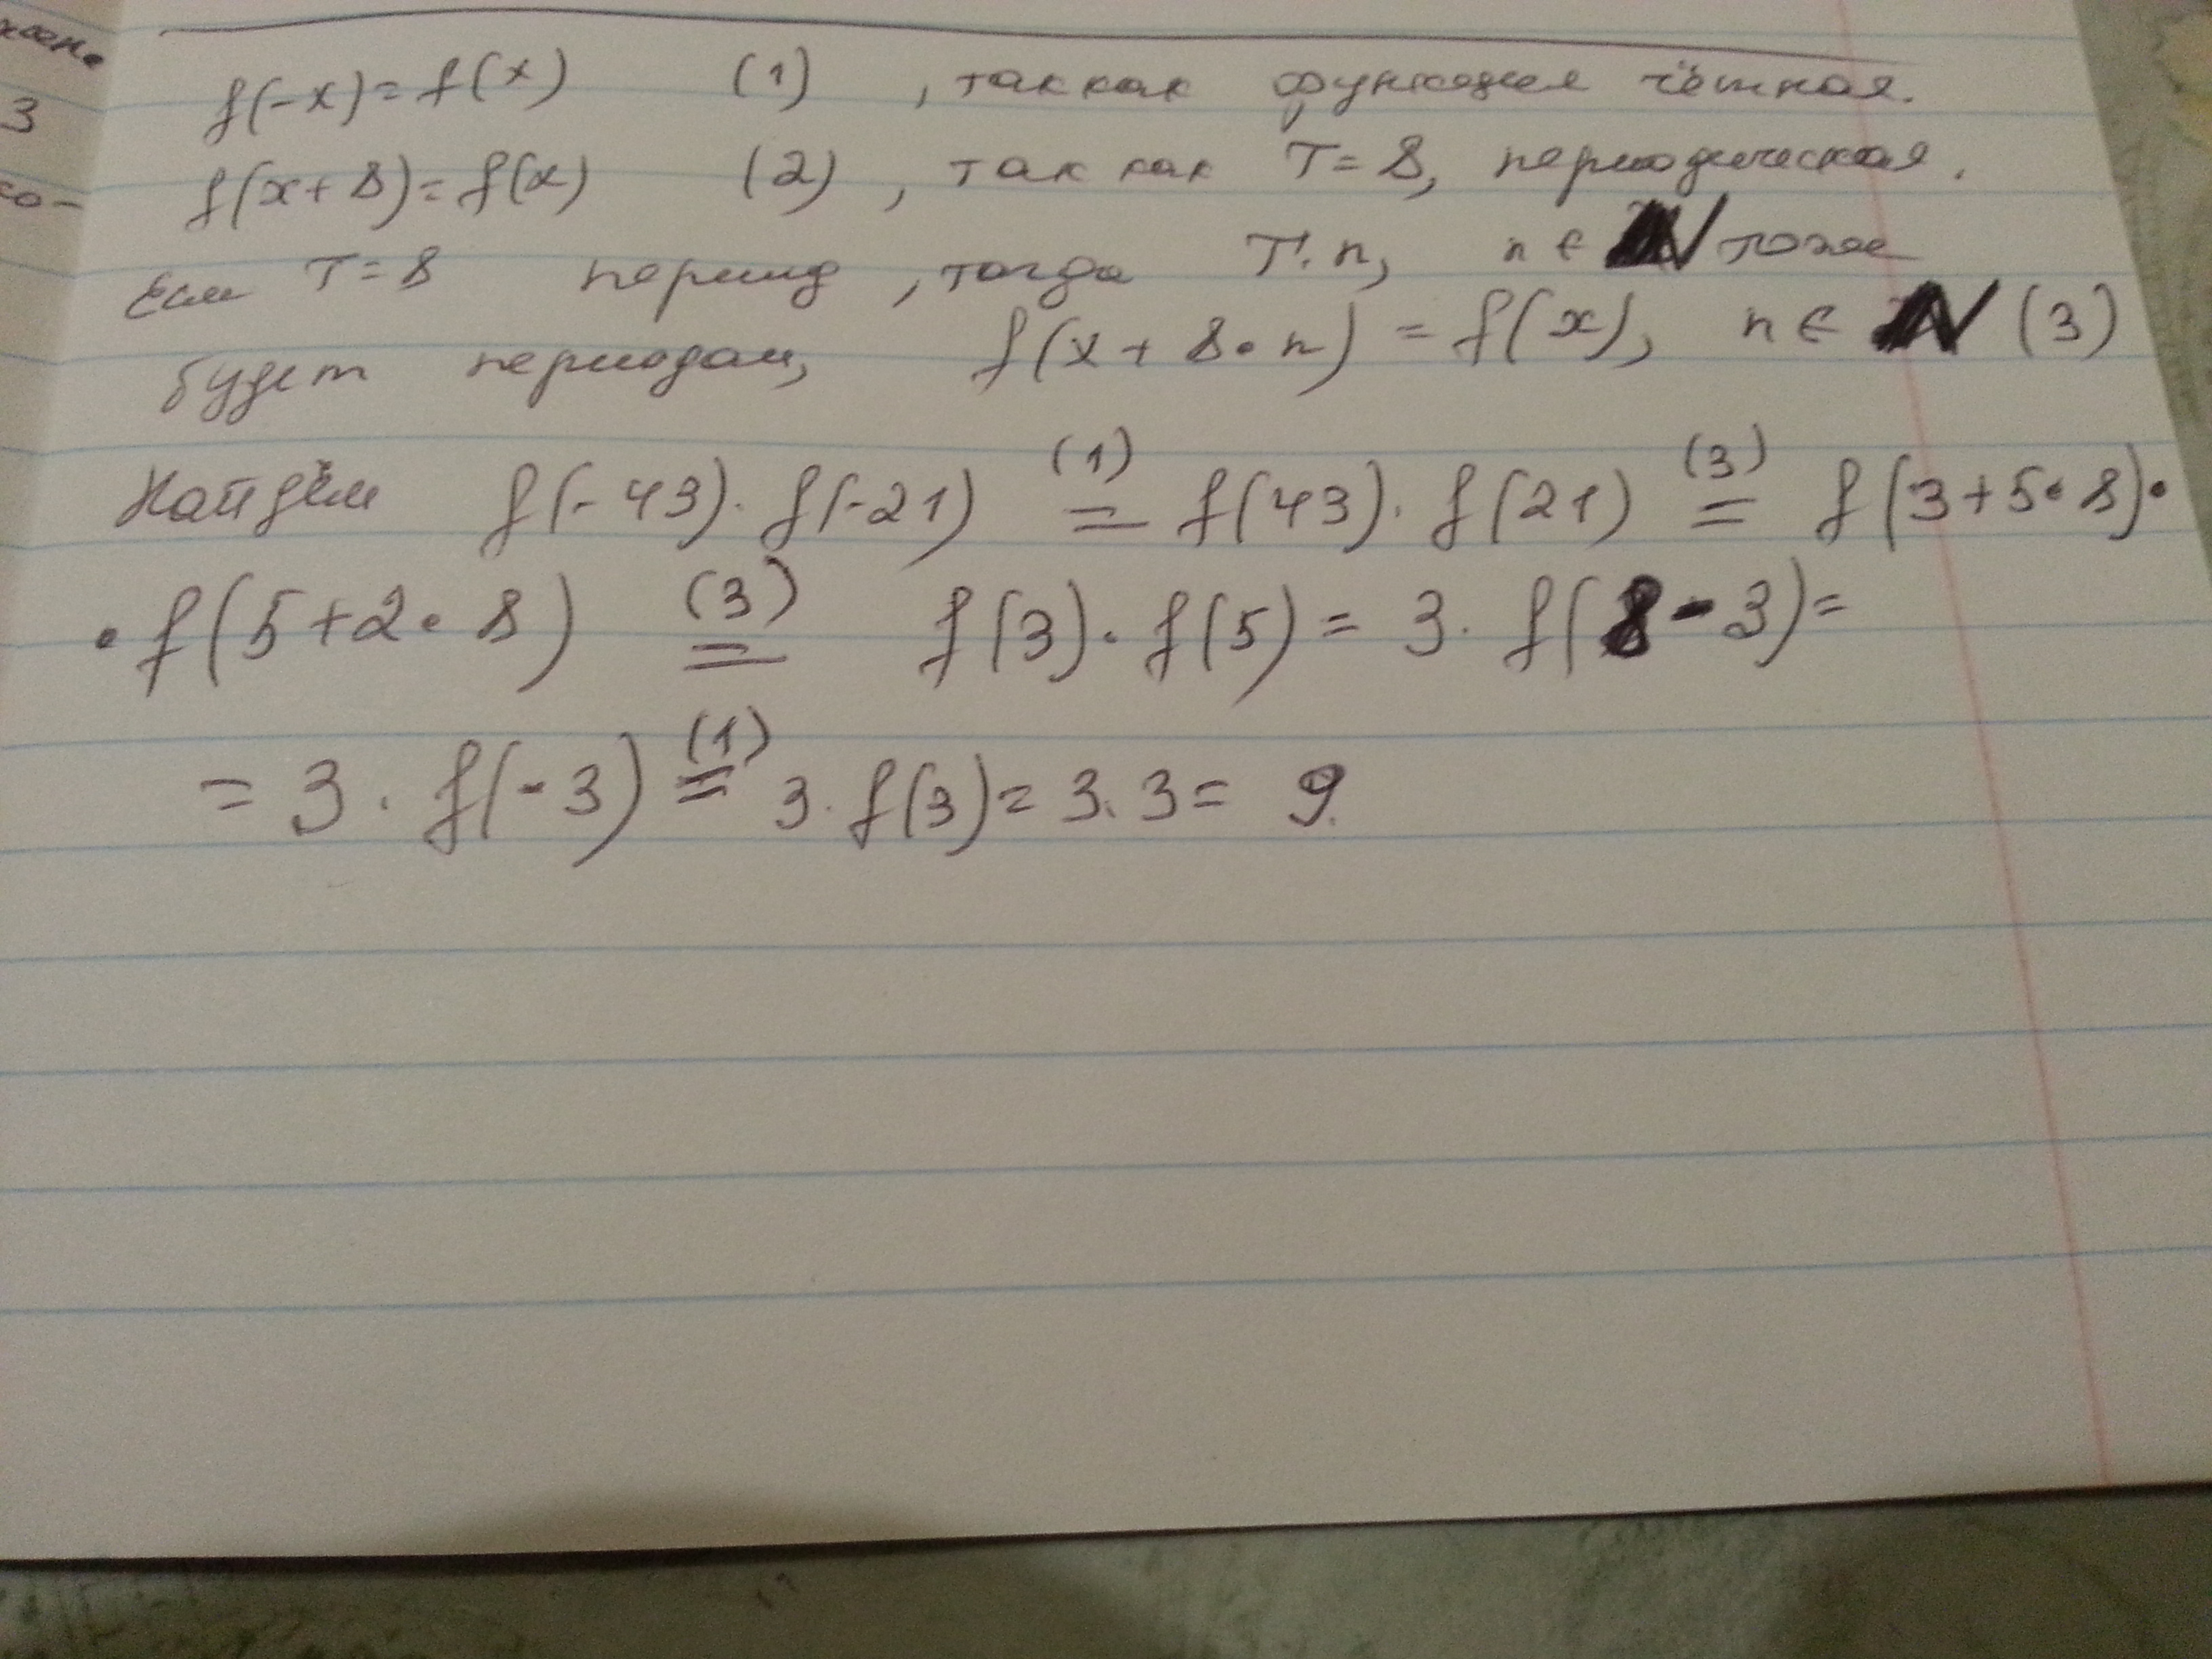 3
со-
f(-x)=f(x) (1) , так как функция чётная.
f(x+8)=f(x) (2) , так как T=8, периодическая.
Если T=8 период, тогда T·n, n∈N тоже
будет периодом, f(x+8·n)=f(x), n∈N (3)
Найдём f(-43)·f(-21) (1)= f(43)·f(21) (3)= f(3+5·8)·
·f(5+2·8) (3)= f(3)·f(5)=3·f(8-3)=
=3·f(-3) (1)= 3·f(3)=3·3=9.